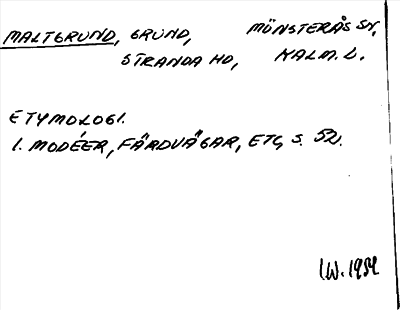 MALTGRUND, GRUND, MÖNSTERÅS SN,
STRANDA HD, KALM. L.
ETYMOLOGI.
1. MODÉER, FÄRDVÄGAR, ETC, S. 52.
I.W. 1954